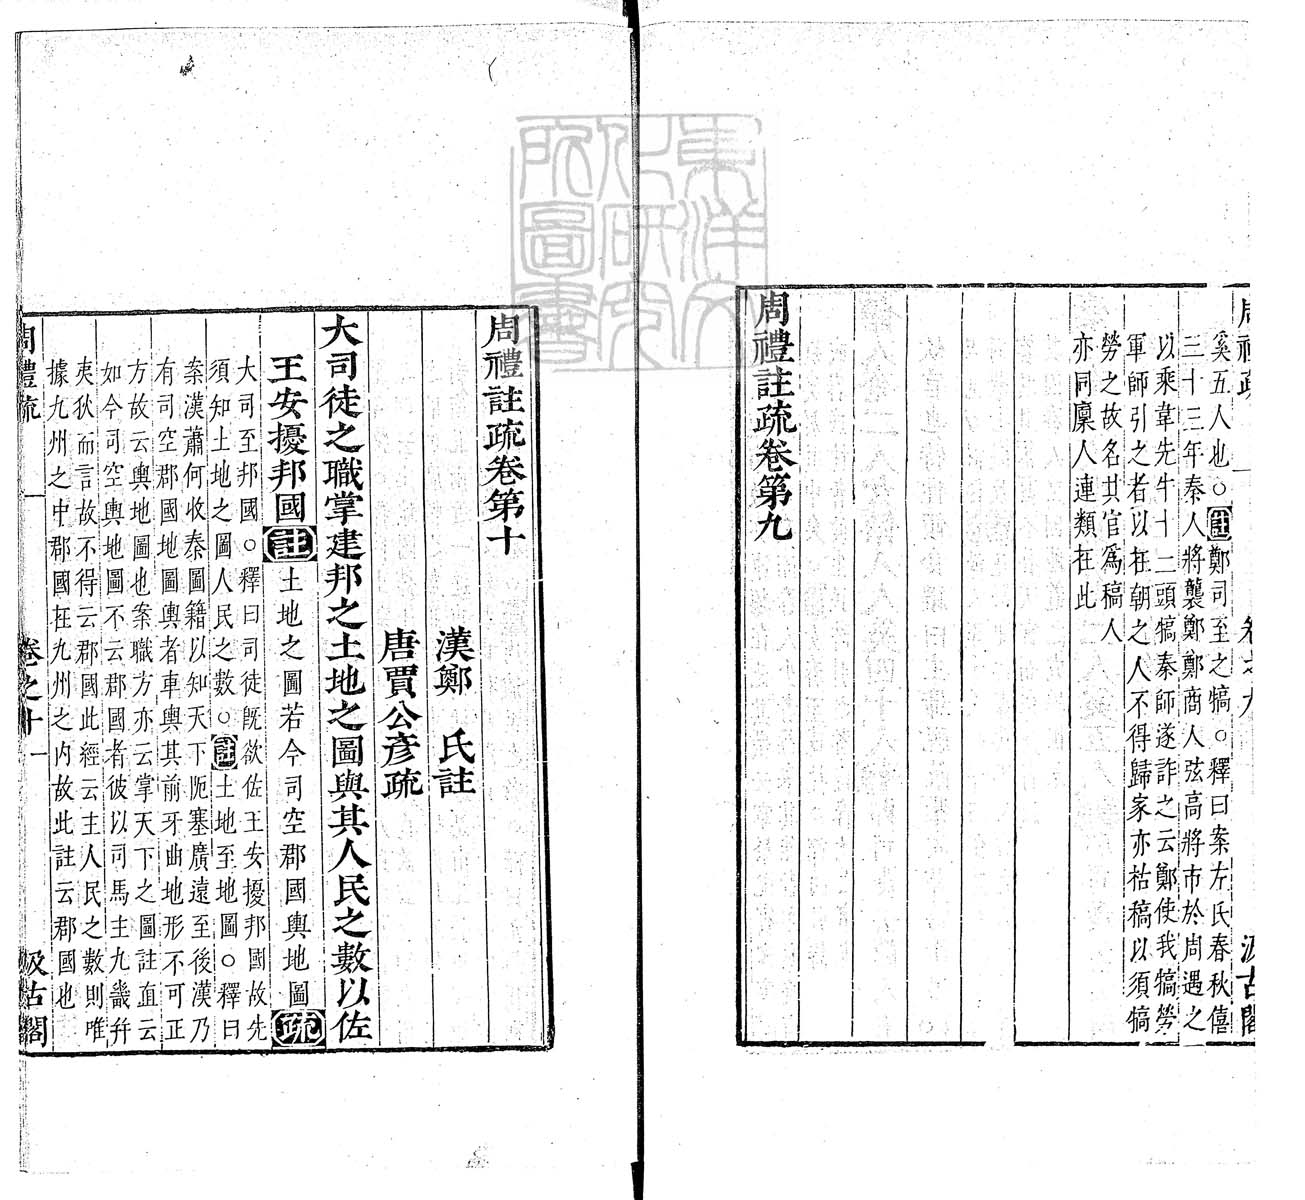 周禮疏 卷之九 汲古閣
奚五人也○註鄭司至之犒○釋曰案左氏春秋僖
三十三年秦人將襲鄭鄭商人弦高將市於周遇之
以乘韋先牛十二頭犒秦師遂詐之云鄭使我犒勞
軍師引之者以在朝之人不得歸家亦枯稿以須犒
勞之故名其官爲稿人
亦同廩人連類在此
周禮註疏卷第九
東洋文
化研究
所圖書
周禮註疏卷第十
漢鄭 氏註
唐賈公彥疏
大司徒之職掌建邦之土地之圖與其人民之數以佐
王安擾邦國註土地之圖若今司空郡國輿地圖疏
大司至邦國○釋曰司徒旣欲佐王安擾邦國故先
須知土地之圖人民之數○註土地至地圖○釋曰
案漢蕭何收秦圖籍以知天下阨塞廣遠至後漢乃
有司空郡國地圖輿者車輿其前牙曲地形不可正
方故云輿地圖也案職方亦云掌天下之圖註直云
如今司空輿地圖不云郡國者彼以司馬主九畿幷
夷狄而言故不得云郡國此經云主人民之數則唯
據九州之中郡國在九州之內故此註云郡國也
周禮疏 卷之十 一 汲古閣